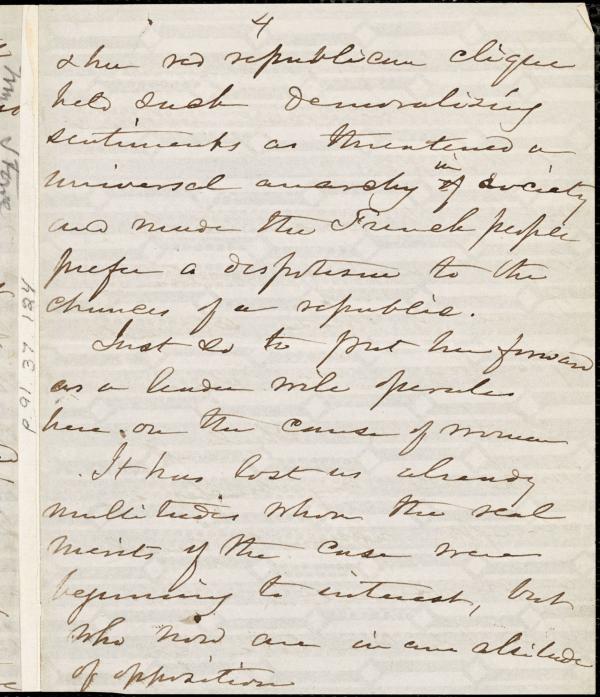 4
& her red republican clique
held such demoralizing
sentiments as threatened a
universal anarchy in society
and made the French people
prefer a despotism to the
chances of a republic.
Just so to put her forward
as a leader will operate
here on the cause of woman
It has lost us already
multitudes whom the real
merits of the case were
beginning to interest, but
who now are in an attitude
of opposition
p. 61. 37. 184